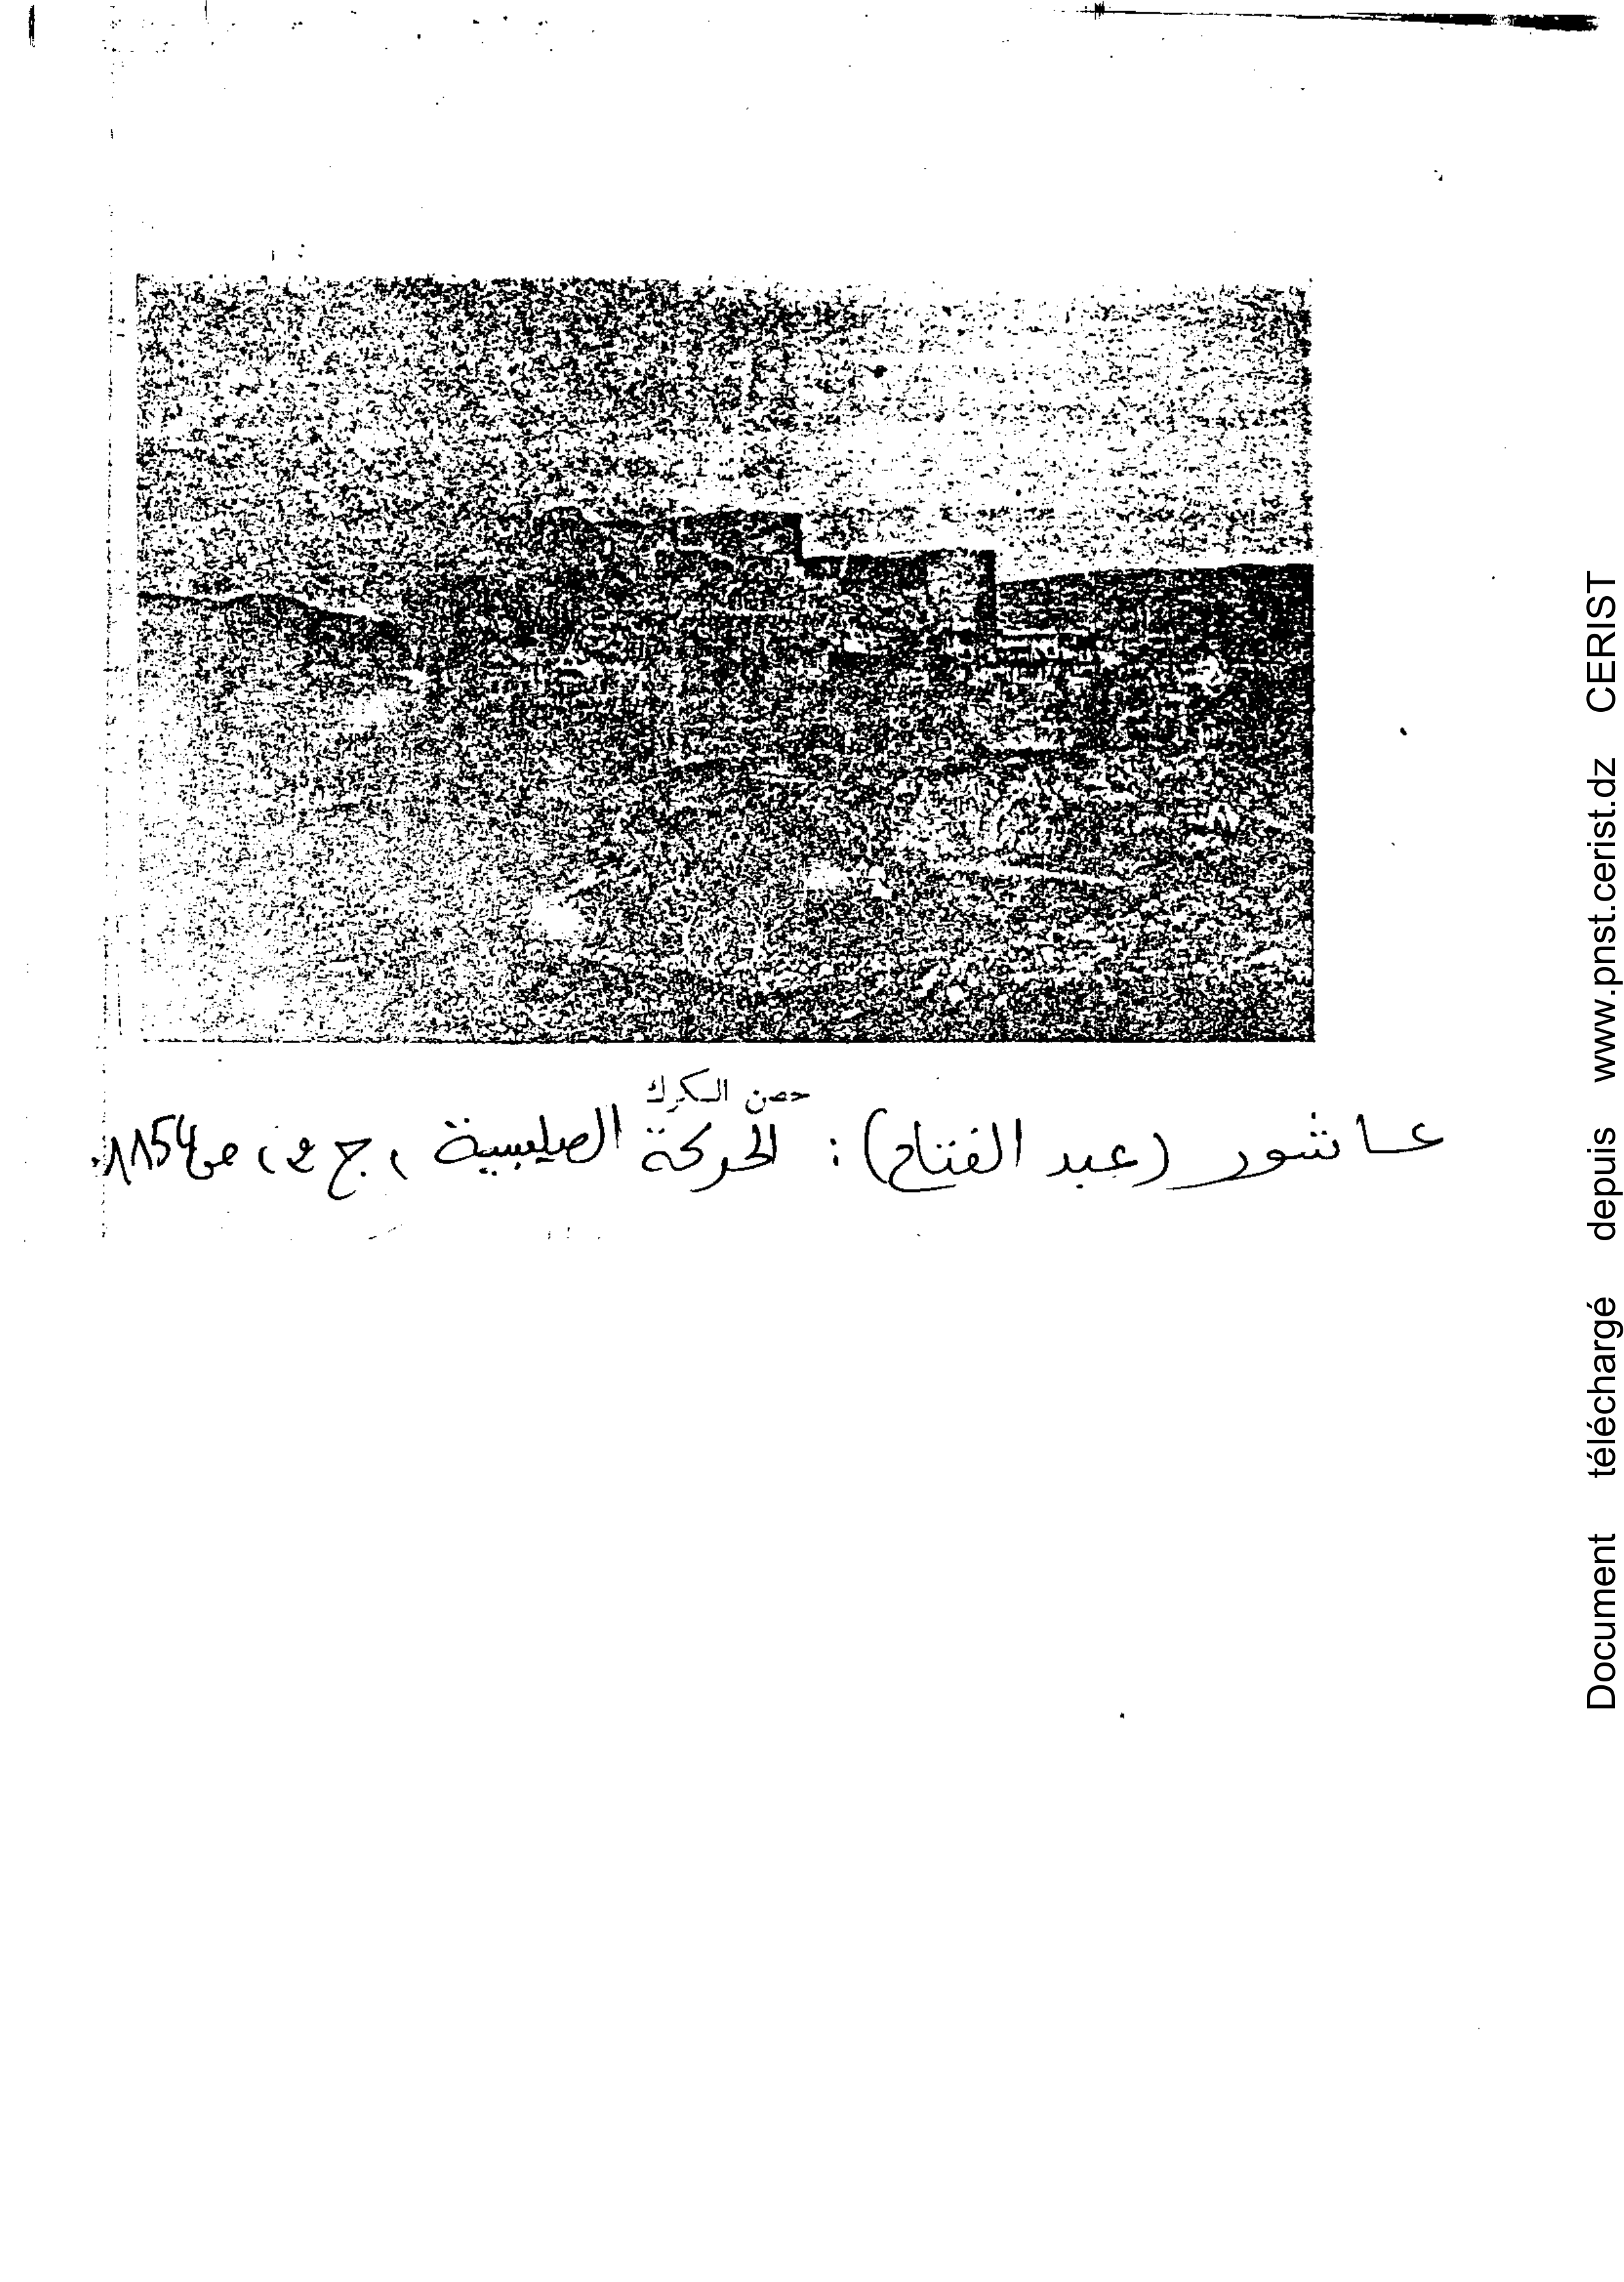 حصن الكرك
عاشور (عبد الفتاح) : الحركة الصليبية ، ج 2 ، ص 1154.
Document téléchargé depuis www.pnst.cerist.dz CERIST